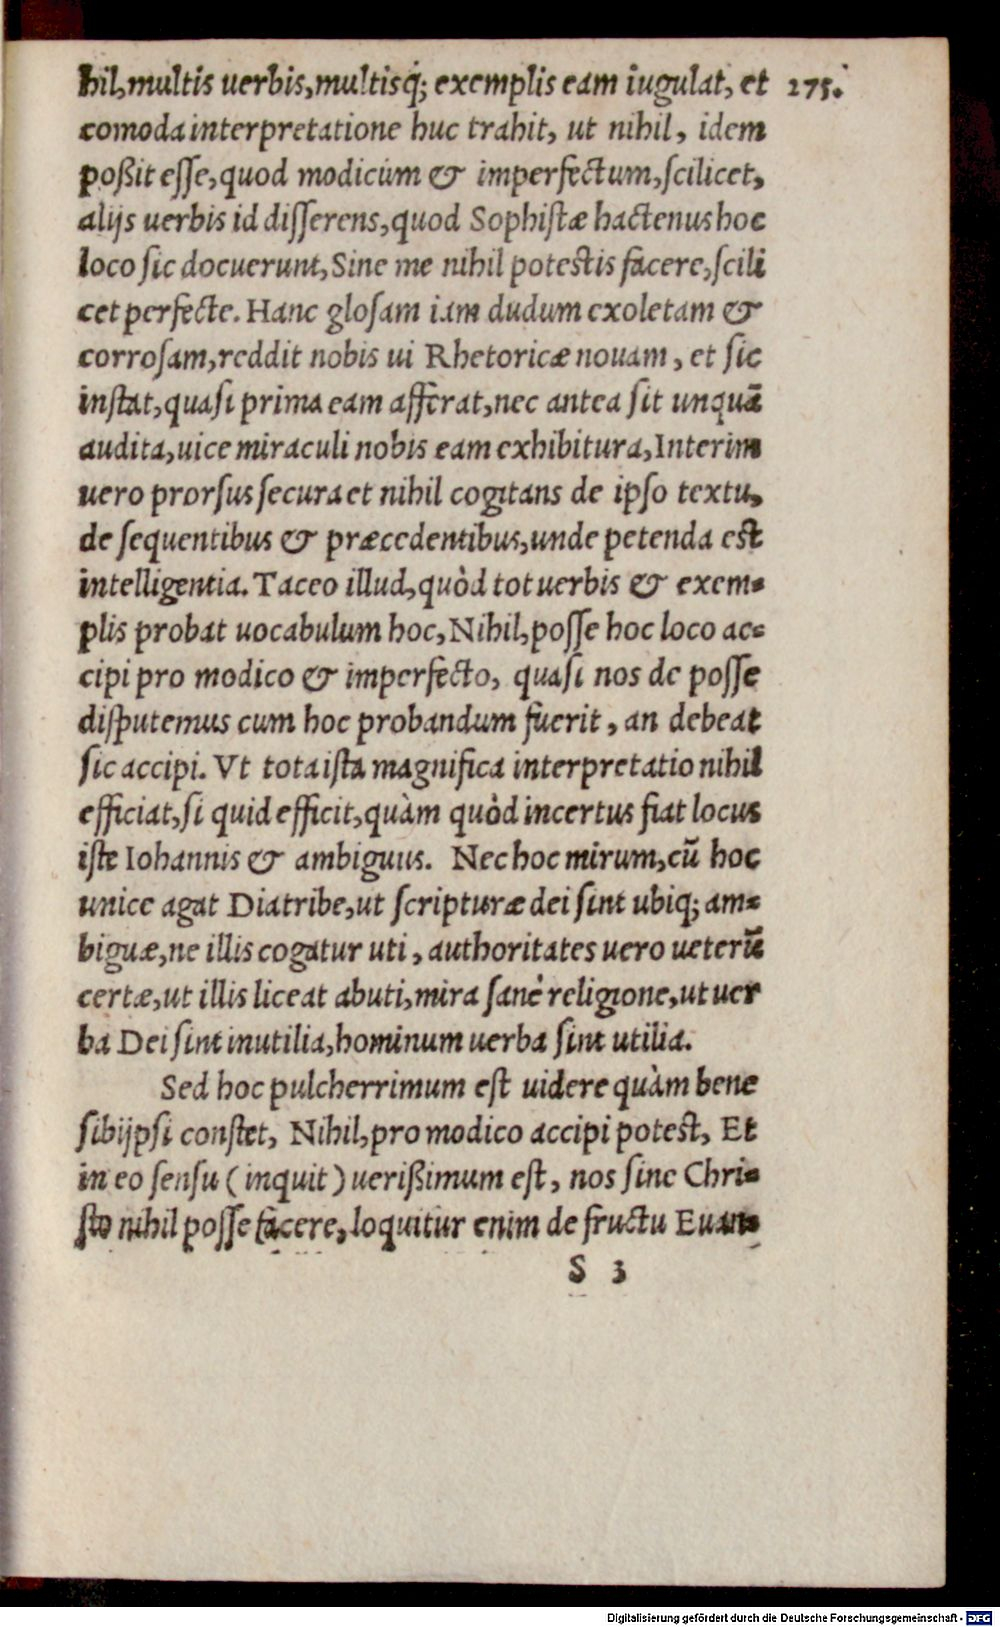 hil, multis uerbis, multisq́; exemplis eam iugulat, et 275.
comoda interpretatione huc trahit, ut nihil, idem
poßit esse, quod modicum & imperfectum, scilicet,
alijs uerbis id disserens, quod Sophistæ hactenus hoc
loco sic docuerunt, Sine me nihil potestis facere, scili
cet perfecte. Hanc glosam iam dudum exoletam &
corrosam, reddit nobis ui Rhetoricæ nouam, et sic
instat, quasi prima eam afferat, nec antea sit unquā
audita, uice miraculi nobis eam exhibitura, Interim
uero prorsus secura et nihil cogitans de ipso textu,
de sequentibus & præcedentibus, unde petenda est
intelligentia. Taceo illud, quòd tot uerbis & exem-
plis probat uocabulum hoc, Nihil, posse hoc loco ac-
cipi pro modico & imperfecto, quasi nos de posse
disputemus cum hoc probandum fuerit, an debeat
sic accipi. Vt tota ista magnifica interpretatio nihil
efficiat, si quid efficit, quàm quòd incertus fiat locus
iste Iohannis & ambiguus. Nec hoc mirum, cū hoc
unice agat Diatribe, ut scripturæ dei sint ubiq; am-
biguæ, ne illis cogatur uti, authoritates uero ueterū
certæ, ut illis liceat abuti, mira sanè religione, ut uer
ba Dei sint inutilia, hominum uerba sint utilia.
Sed hoc pulcherrimum est uidere quàm bene
sibijpsi constet, Nihil, pro modico accipi potest, Et
in eo sensu (inquit) uerißimum est, nos sine Chri-
sto nihil posse facere, loquitur enim de fructu Euan-
S 3
Digitalisierung gefördert durch die Deutsche Forschungsgemeinschaft - DFG